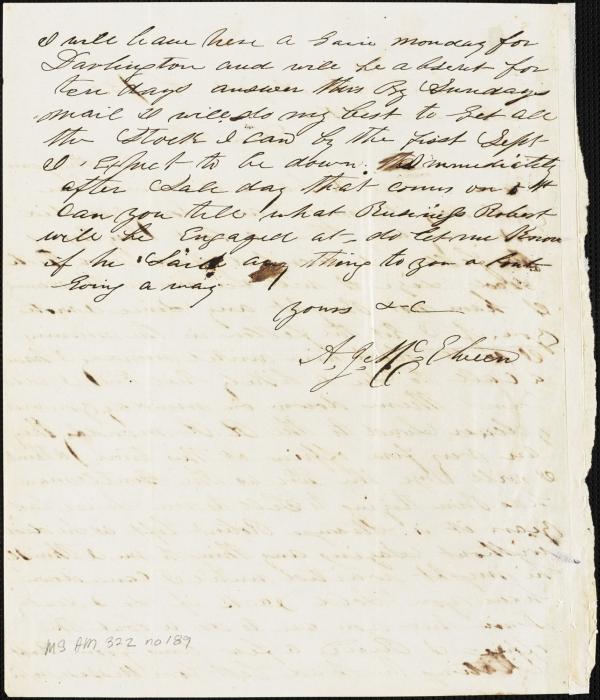 I will leave here a Gain monday for
Darlington and will be absent for
ten days answer this By Sundays
mail I will do my best to Get all
the Stock I can by the first Sept
I Expect to be down immediately
after Sale day that comes on
Can you tell what Business Robert
will be Engaged at - do let me Know
if he Said any thing to you a bout
Going a way
yours &c
A. J. McElveen
MS AM 322 no 189